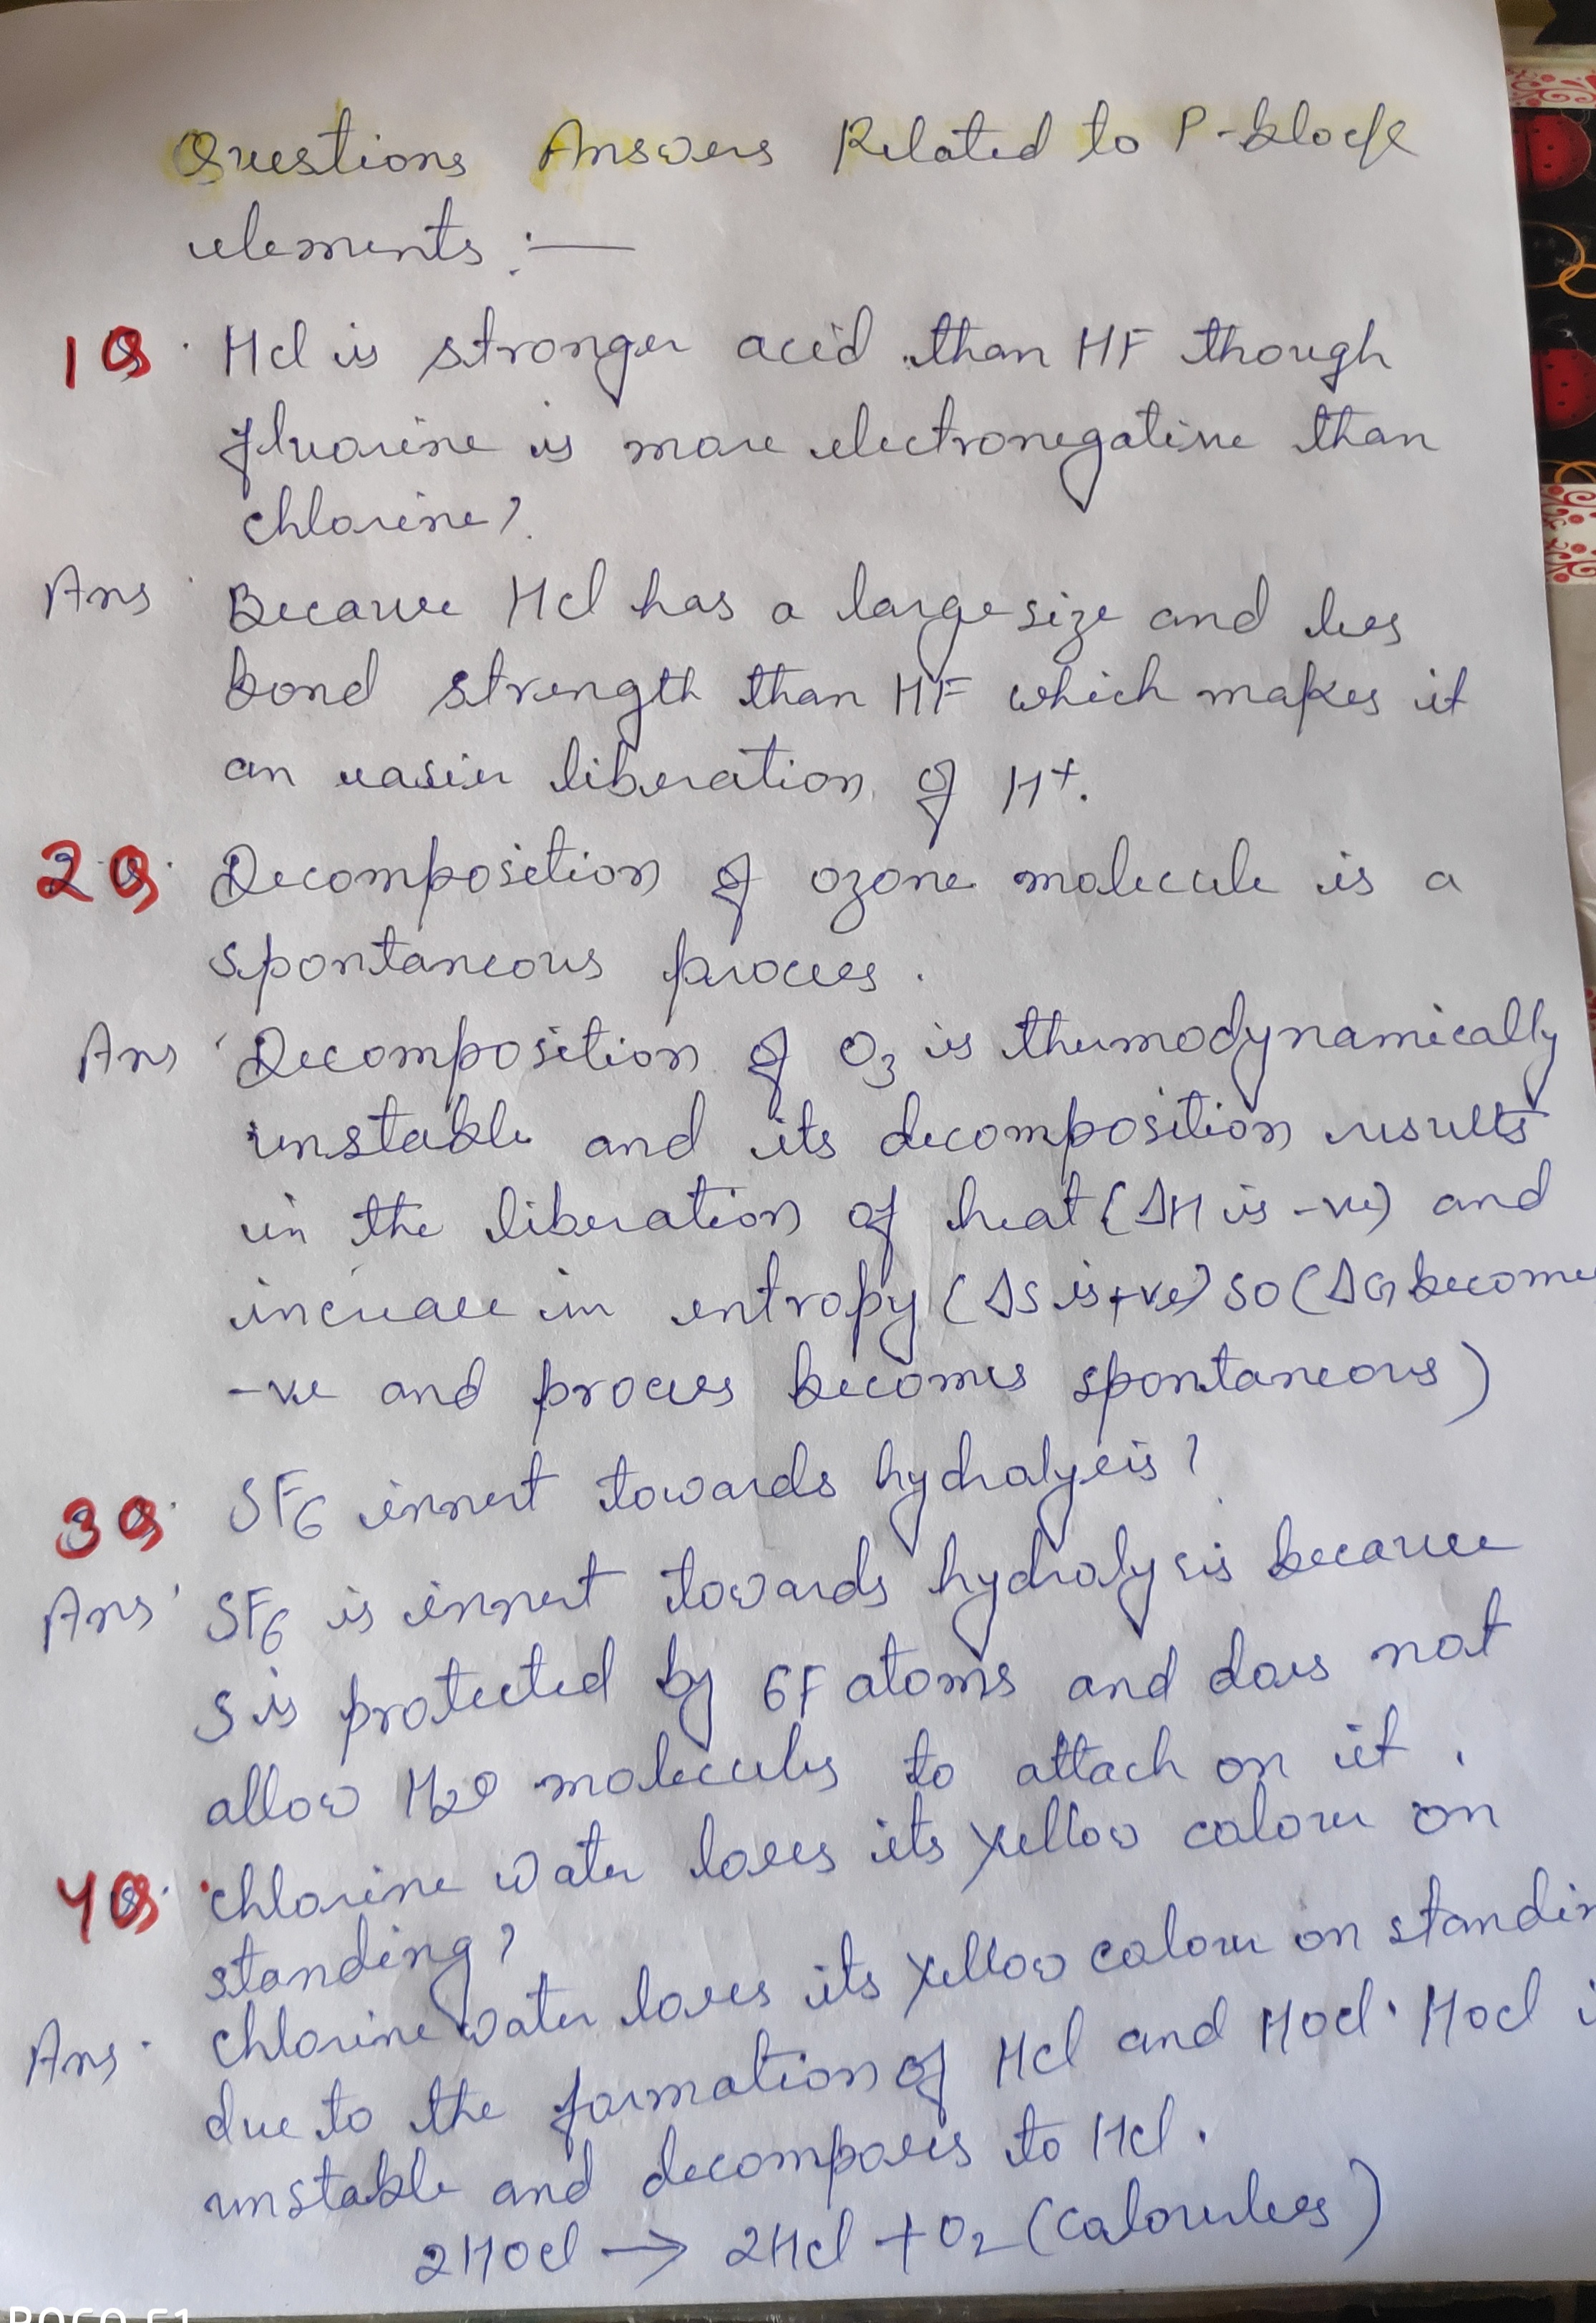 Questions Answers Related to P-block
elements :—
1Q. HCl is stronger acid than HF though
fluorine is more electronegative than
chlorine?
Ans. Because HCl has a large size and less
bond strength than HF which makes it
an easier liberation of H+.
2Q. Decomposition of ozone molecule is a
spontaneous process.
Ans. Decomposition of O3 is thermodynamically
unstable and its decomposition results
in the liberation of heat (ΔH is -ve) and
increase in entropy (ΔS is +ve) so (ΔG become
-ve and process becomes spontaneous)
3Q. SF6 innert towards hydrolysis?
Ans. SF6 is innert towards hydrolysis because
S is protected by 6F atoms and does not
allow H2O molecules to attach on it.
4Q. Chlorine water loses its yellow colour on
standing?
Ans. Chlorine water loses its yellow colour on standin
due to the formation of HCl and HOCl. HOCl i
unstable and decomposes to HCl.
2HOCl → 2HCl + O2 (colourless)